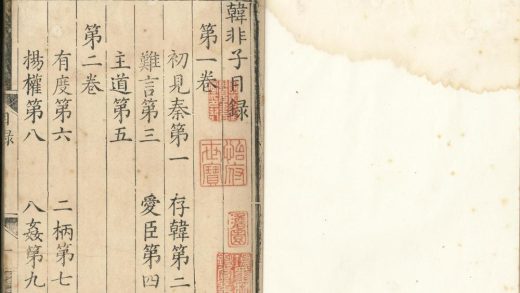 韓非子目錄
第一卷
初見秦第一 存韓第二
難言第三 愛臣第四
主道第五
第二卷
有度第六 二柄第七
揚權第八 八姦第九
目錄
怡府
世寶